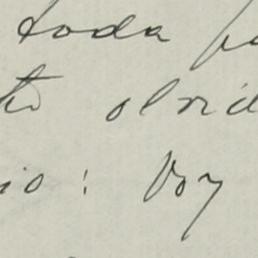 toda
olvid
io: Voy